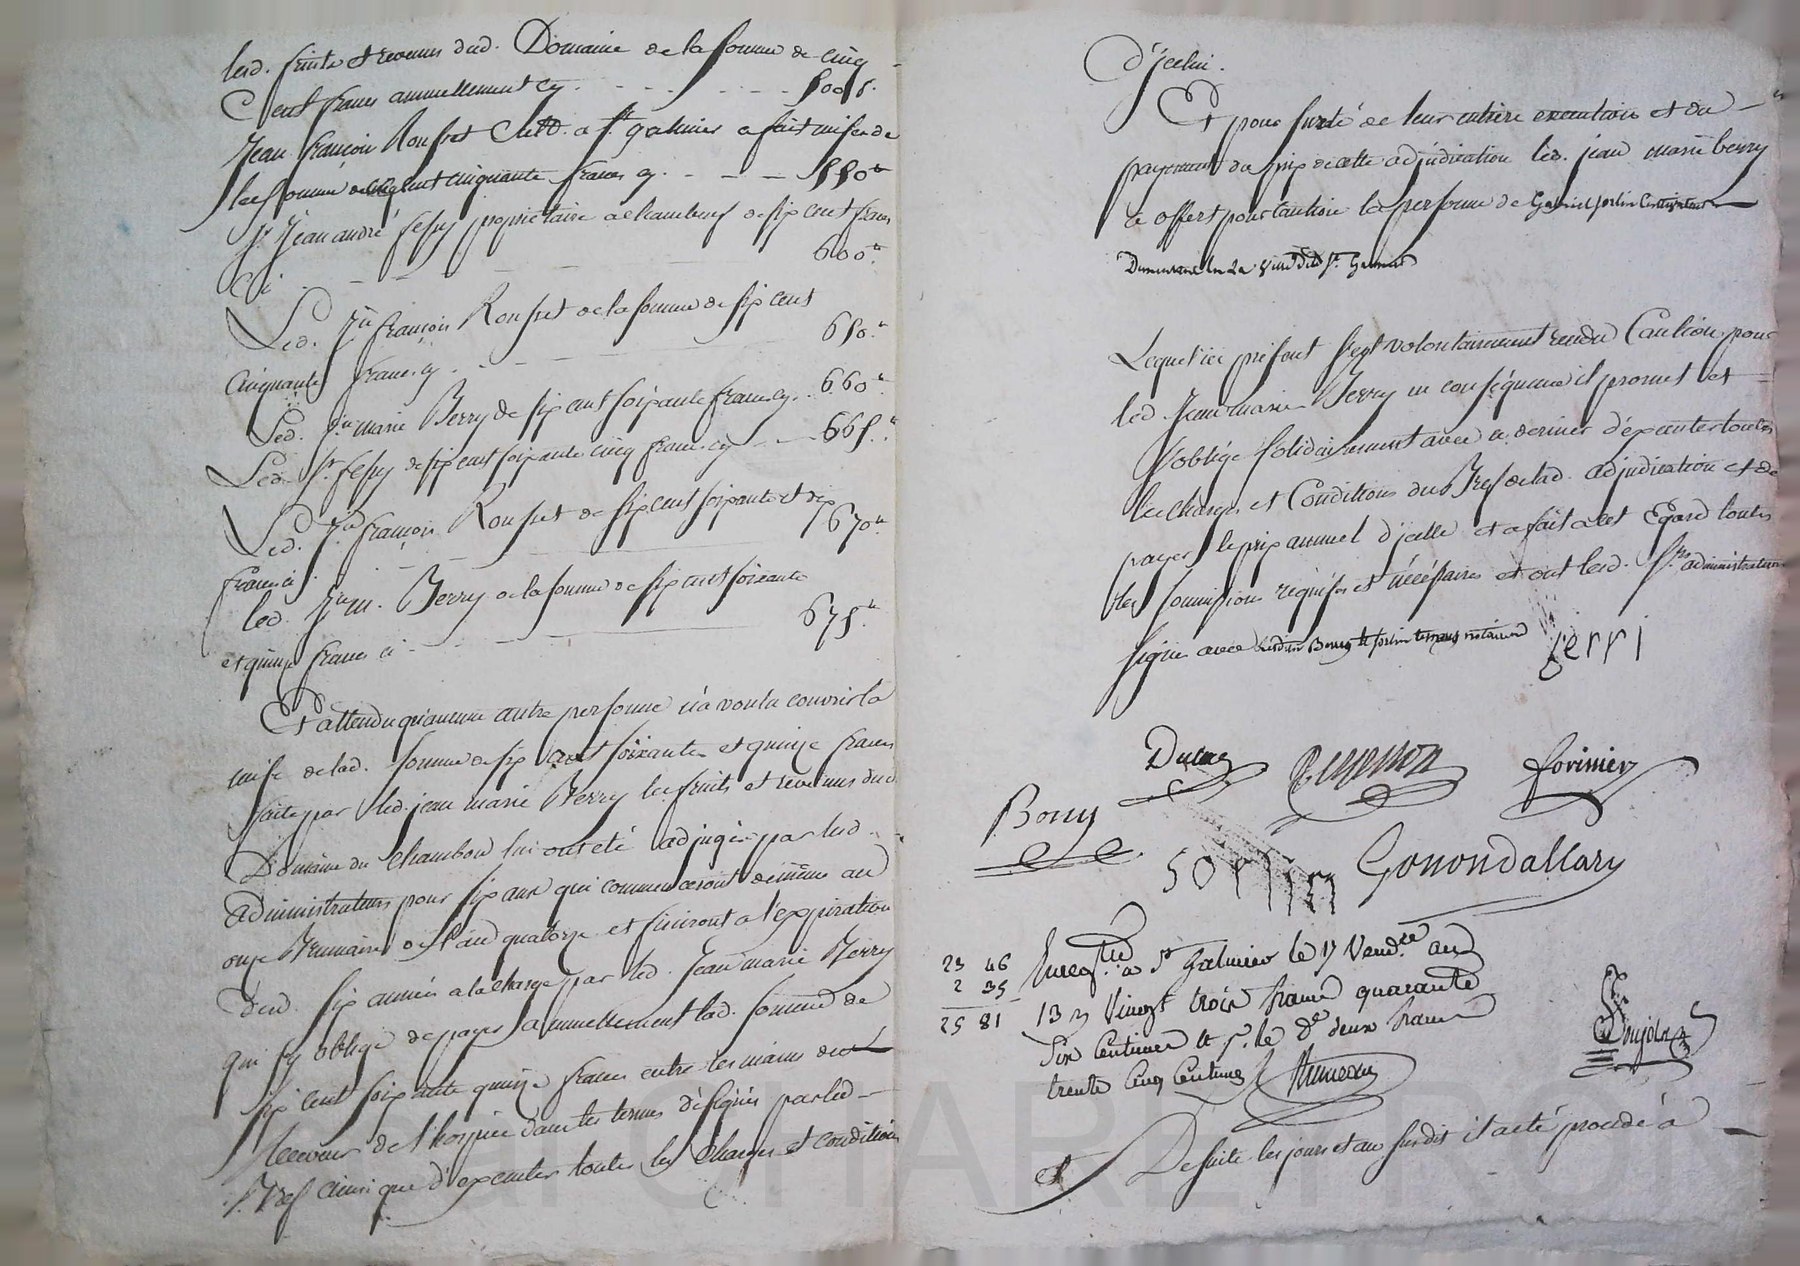 lesd. fruits et revenus dud. Domaine de la somme de cinq
Cent francs annuellement cy. . . . . . . . 500 f.
Jean François Ronfret Cult. a St. galmier a fait mise de
la somme de cinquante francs cy. - - - 550 ₶
Sr. Jean andré fessy propriétaire a chambeuf de six cent francs
Ci - - - - 600 ₶
Led. Jn. françois Ronfret de la somme de six cent
cinquante francs cy. - - 650 ₶
Led. Jn. marie Berry de six cent soixante francs cy. . 660 ₶
Led. Sr. fessy de six cent soixante cinq francs cy - - 665 ₶
Led. Jn. françois Ronfret de six cent soixante et dix
francs ci . - - 670 ₶
led. Jn. m. Berry de la somme de six cent soixante
et quinze francs ci - - - 675 ₶
Et attendu qu'aucune autre personne n'a voulu couvrir la
mise de lad. somme de six cent soixante et quinze francs
faite par led. jean marie Berry les fruits et revenus dud.
Domaine du chambon lui ont été adjugés par lesd.
administrateurs pour six ans qui commenceront de même au
onze Brumaire de l'an quatorze et finiront a l'expiration
desd. six années a la charge par led. Jean marie Berry
qui s'y oblige de payer annuellement lad. somme de
six cent soixante quinze francs entre les mains du
Receveur de l'hospice dans les termes désignés par led.
ainsi que d'executer toutes les charges et conditions
d'jcelui.
Et pour sureté de leur entière execution et du
payement du prix de cette adjudication led. jean marie berry
a offert pour caution la personne de Gabriel sorlin
Demeurant en la Ville dud St. Galmier
Lequel ici présent s'est volontairement rendu Caution pour
led. Jean marie Berry en conséquence il promet et
s'oblige solidairement avec ce dernier d'éxecuter toutes
les charges et Conditions du de lad. adjudication et de
payer le prix annuel d'jcelle et a fait a cet Egard toutes
les soumissions requises et nécéssaires et ont lesd. Srs. administrateurs
signé avec Berry et sorlin
berri
Ducas
forinier
Bory
sorlin Gonondallary
23 46
2 35
25 81
Enregtré a St Galmier le 17 Vendre an
13 Vingt trois francs quarante
Six Centimes et pr. le De deux francs
trente Cinq Centimes
Et De suite les jours et an susdits il a été procédé à